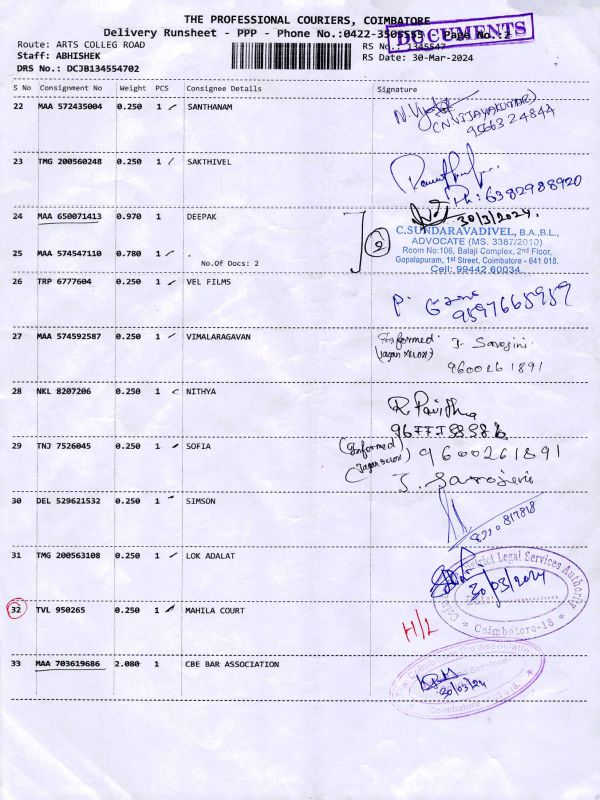 THE PROFESSIONAL COURIERS, COIMBATORE
DOCUMENTS
Delivery Runsheet - PPP - Phone No.:0422-3505555 - Page No.:2
Route: ARTS COLLEG ROAD
RS No.: 1345547
Staff: ABHISHEK
RS Date: 30-Mar-2024
DRS No.: DCJB134554702
S No Consignment No Weight PCS Consignee Details Signature
22 MAA 572435004 0.250 1 SANTHANAM
(N.VIJAYAKUMAR)
9566324844
23 TMG 200560248 0.250 1 SAKTHIVEL
Ph: 6382988920
30/3/2024.
24 MAA 650071413 0.970 1 DEEPAK
C.SUNDARAVADIVEL, B.A.,B.L.,
ADVOCATE (MS. 3387/2010)
Room No:106, Balaji Complex, 2nd Floor,
Gopalapuram, 1st Street, Coimbatore - 641 018.
Cell: 99442 60034
25 MAA 574547110 0.780 1 .
No.Of Docs: 2
26 TRP 6777604 0.250 1 VEL FILMS
9597665959
27 MAA 574592587 0.250 1 VIMALARAGAVAN
Informed J. Sarojini
(Jagan xerox) 9600261891
28 NKL 8207206 0.250 1 NITHYA
R. Pavithra
29 TNJ 7526045 0.250 1 SOFIA
(Informed) 9600261891
(Jagan xerox)
J. Sarojini
30 DEL 529621532 0.250 1 SIMSON
31 TMG 200563108 0.250 1 LOK ADALAT
District Legal Services Authority
30/03/2024
Coimbatore-18
32 TVL 950265 0.250 1 MAHILA COURT
H/L
33 MAA 703619686 2.080 1 CBE BAR ASSOCIATION
30/03/24